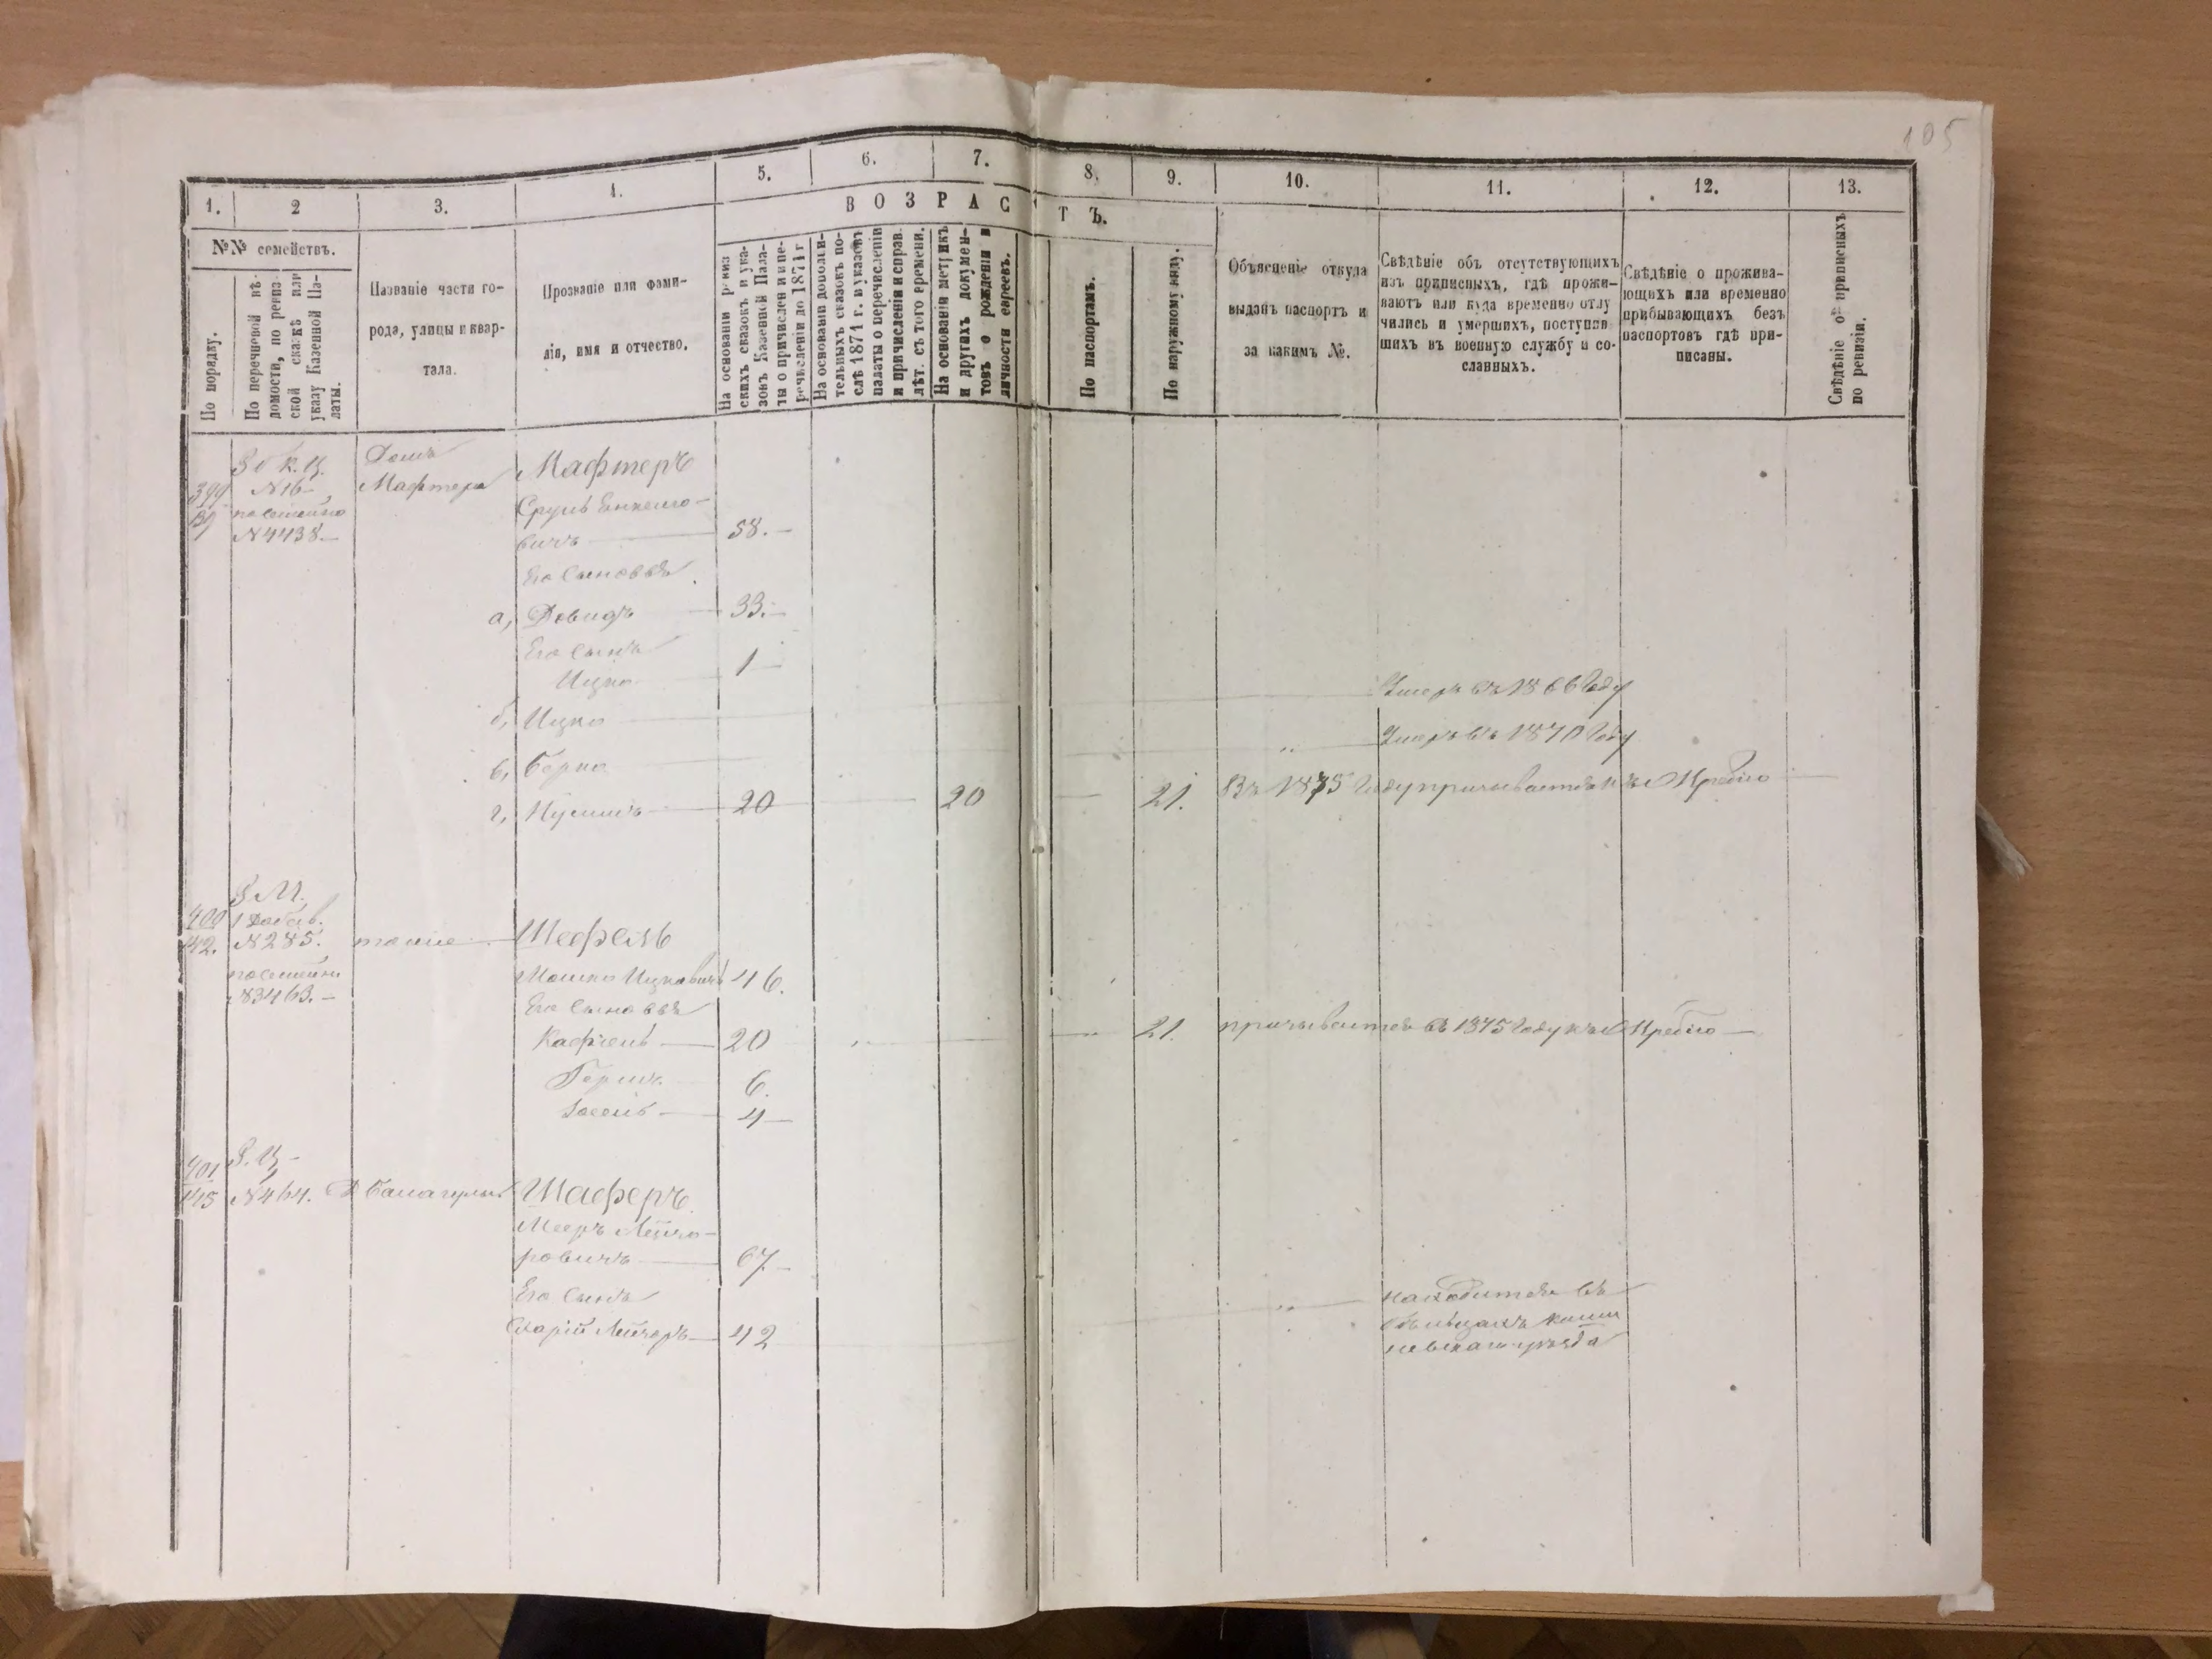 105
1.
2
3.
4.
5.
6.
7.
8.
9.
10.
11.
12.
13.
В О З Р А С Т Ъ.
№№ семействъ.
По порядку.
По перечневой вѣ-
домости, по ревиз-
ской сказкѣ или
указу Казенной Па-
латы.
Названіе части го-
рода, улицы и квар-
тала.
Прозваніе или фами-
лія, имя и отчество.
На основаніи ревиз
скихъ сказокъ и ука-
зовъ Казенной Пала-
ты о причислен и и пе-
речислении до 1871 г
На основаніи дополни-
тельныхъ сказокъ по-
слѣ 1871 г. и указовъ
палаты о перечисленіи
и причисленіи и справ.
лѣт. съ того времени.
На основаніи метрикъ
и другихъ докумен-
товъ о рожденіи и
личности евреевъ.
По паспортамъ.
По наружному виду.
Объясненіе откуда
выданъ паспортъ и
за какимъ №.
Свѣдѣніе объ отсутствующихъ
изъ приписныхъ, гдѣ прожи-
ваютъ или куда временно отлу
чились и умершихъ, поступив
шихъ въ военную службу и со-
сланныхъ.
Свѣдѣніе о прожива-
ющихъ или временно
прибывающихъ безъ
паспортовъ гдѣ при-
писаны.
Свѣдѣніе о приписныхъ
по ревизіи.
399
N 16
N 4438.
Домъ
Мафтера
Мафтеръ
Сруль
вичъ 58.
Его Сыновья
а, Довидъ 33.
Его Сынъ
Ицко 1
б, Ицко Умеръ въ 1866 Году
в, Берко Умеръ въ 1870 Году
г, Нусимъ 20 20 21. Въ 1875 Году призывается къ Жребію
400
42.
N 285.
N 3463.
тоже
Шефель
Мошко Ицковичъ 46.
Его Сыновья
Кафтель 20 21. призывается въ 1875 Году къ Жребію
Гершъ 6.
Іосель 4
401
N 464.
Шаферъ
Мееръ Лейзо-
ровичъ 67
Его Сынъ
Лейзеръ 42
находится въ
Кіши
невскаго уѣзда